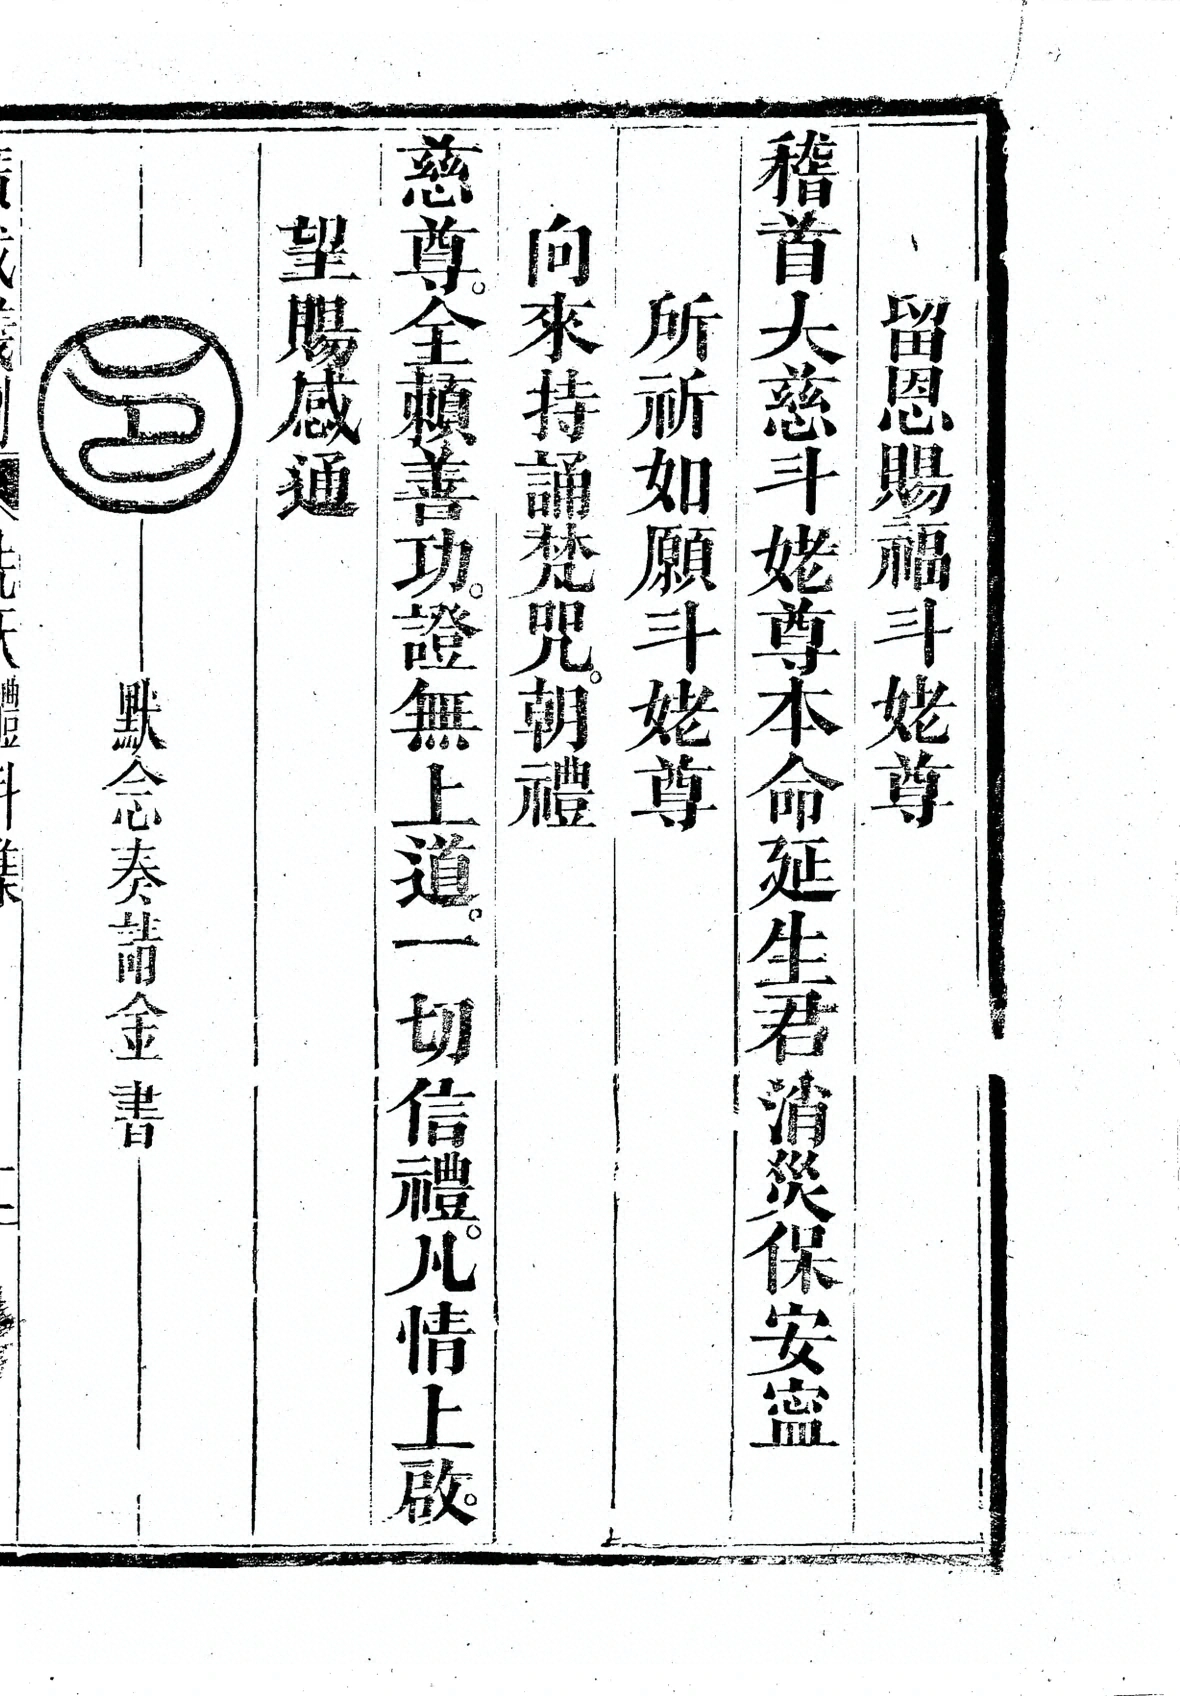 留恩賜福斗姥尊
稽首大慈斗姥尊本命延生君消災保安寍
所祈如願斗姥尊
向來持誦梵咒。朝禮
慈尊。全賴善功。證無上道。一切信禮。凡情上啟。
望賜感通
默念奏請金書